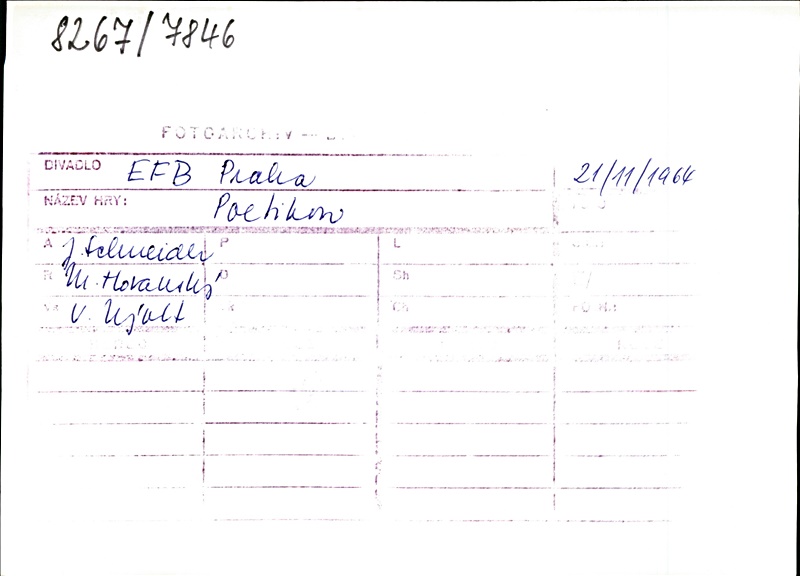 8267/7846
FOTOARCHIV
DIVADLO EFB Praha 21/11/1964
NÁZEV HRY: Poetikon
A J. Schneider P L
R M. Horanský Sh
V. Ujalt Ch